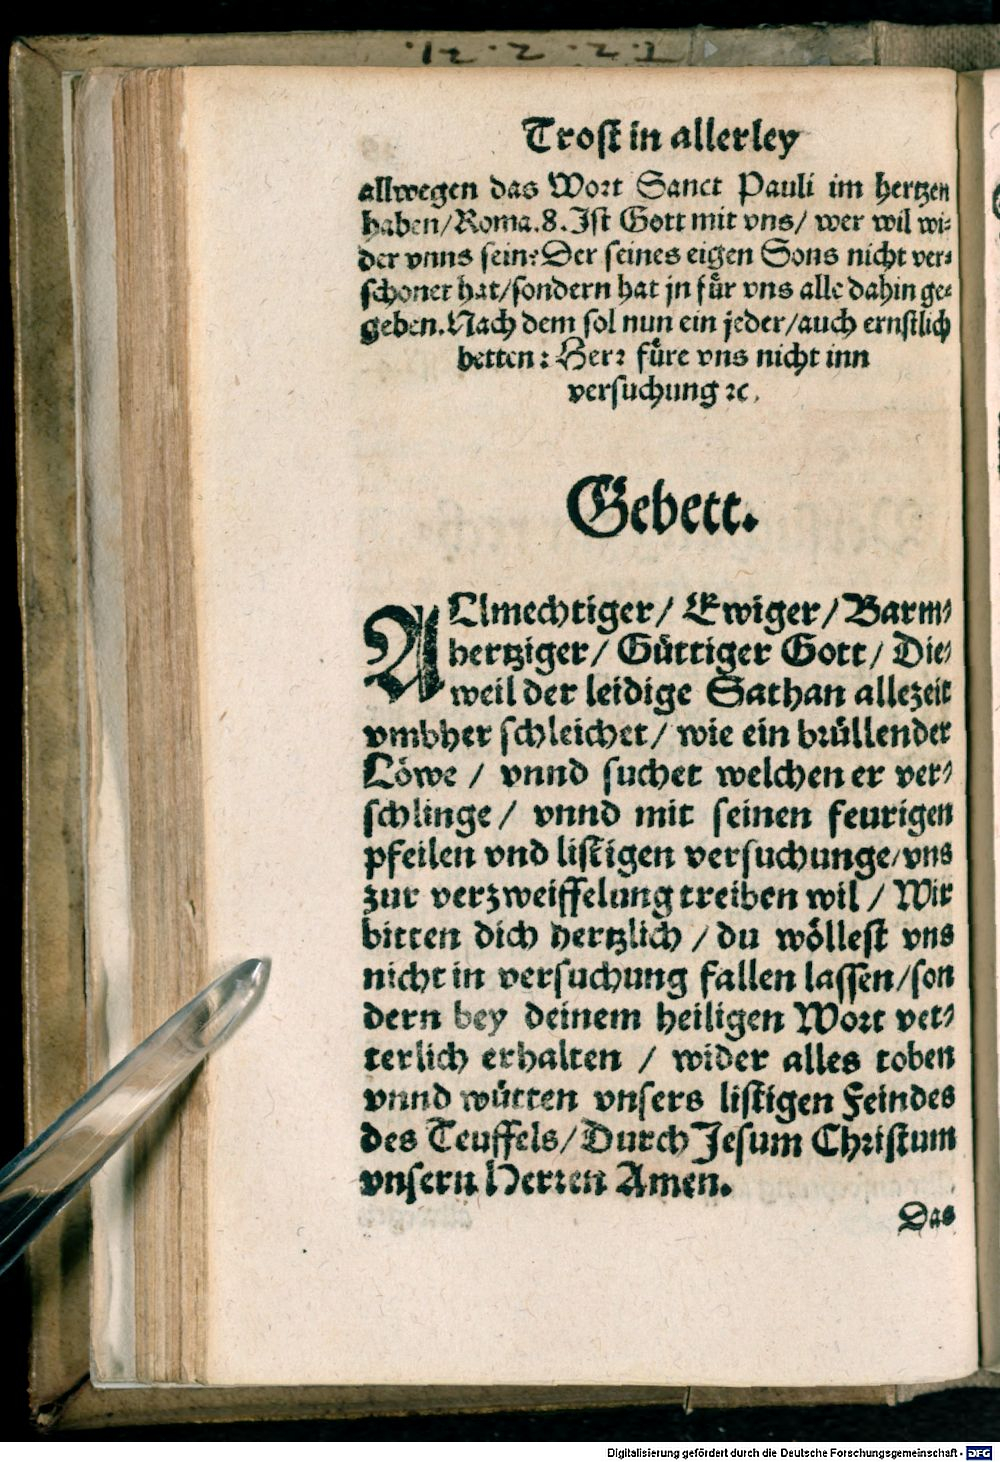 Trost in allerley
allwegen das Wort Sanct Pauli im hertzen
haben/Roma.8.Ist Gott mit vns/ wer wil wi-
der vnns sein? Der seines eigen Sons nicht ver-
schonet hat/sondern hat jn für vns alle dahin ge-
geben. Nach dem sol nun ein jeder/auch ernstlich
betten: Herr füre vns nicht inn
versuchung ꝛc.
Gebett.
ALlmechtiger/ Ewiger/ Barm-
hertziger/ Güttiger Gott/ Die-
weil der leidige Sathan allezeit
vmbher schleichet/ wie ein brüllender
Löwe / vnnd suchet welchen er ver-
schlinge/ vnnd mit seinen feurigen
pfeilen vnd listigen versuchunge/vns
zur verzweiffelung treiben wil / Wir
bitten dich hertzlich /du wöllest vns
nicht in versuchung fallen lassen/son
dern bey deinem heiligen Wort vet-
terlich erhalten / wider alles toben
vnnd wütten vnsers listigen Feindes
des Teuffels/ Durch Jesum Christum
vnsern Herren Amen.
Das
Digitalisierung gefördert durch die Deutsche Forschungsgemeinschaft - DFG